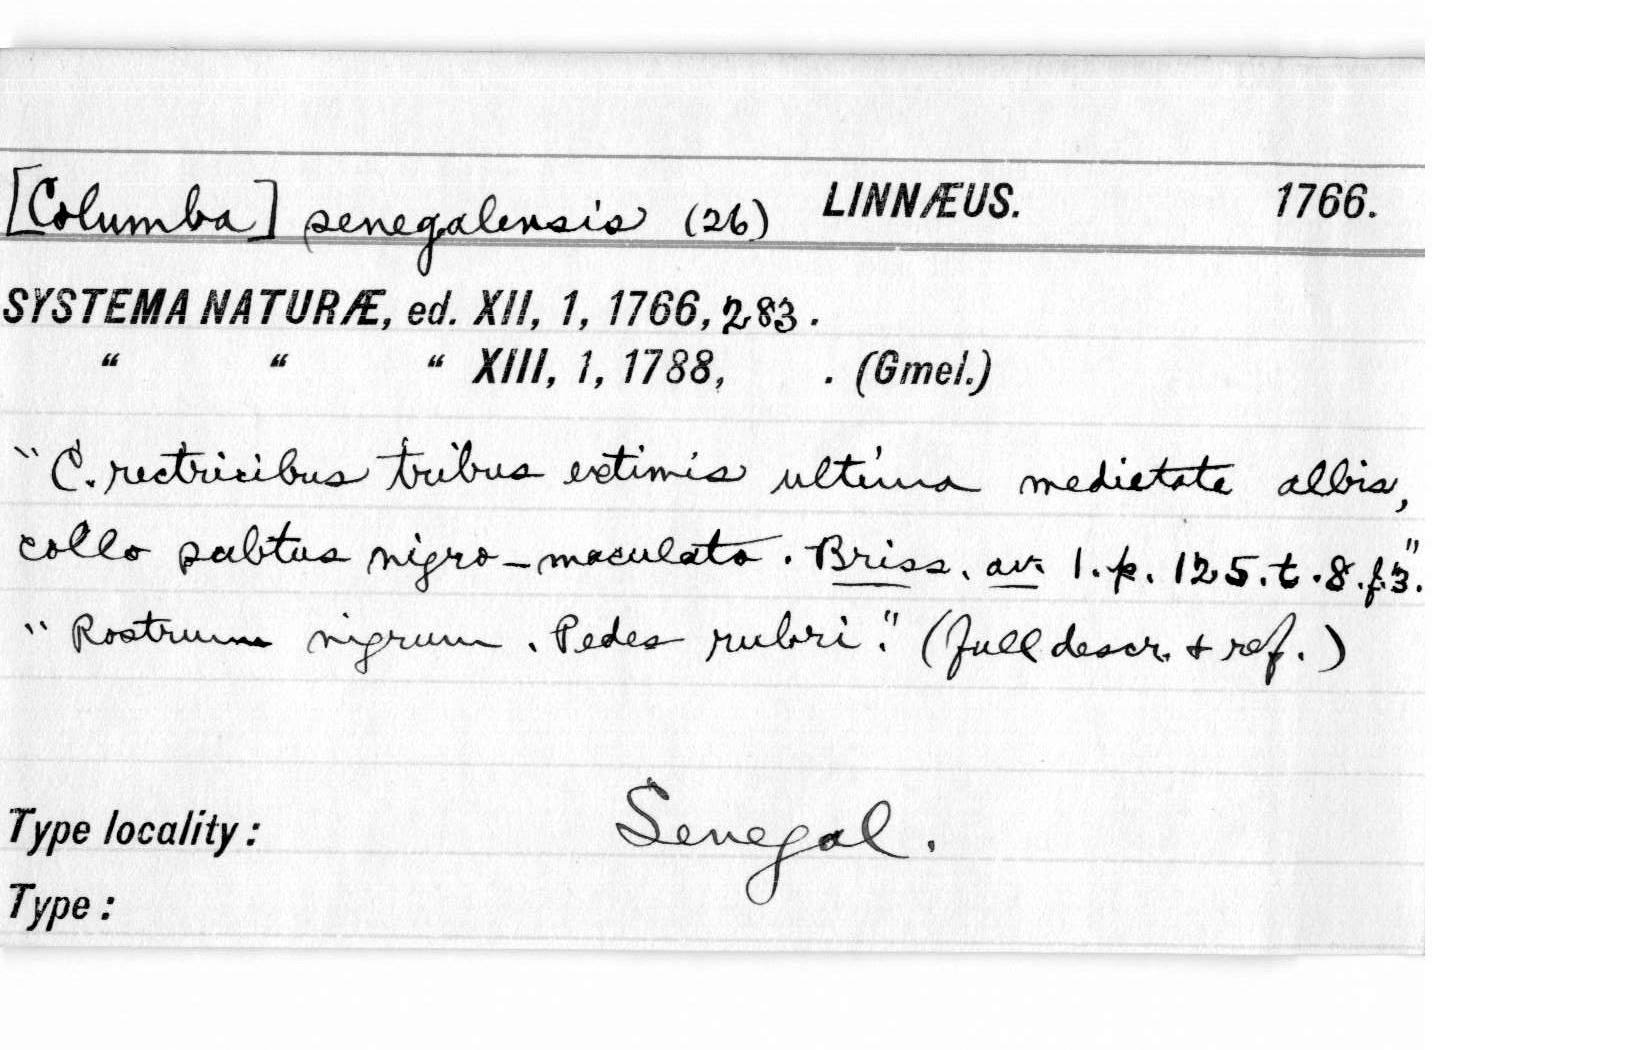 [Columba] senegalensis (26) LINNÆUS. 1766.
SYSTEMA NATURÆ, ed. XII, 1, 1766, 283.
“ “ “ XIII, 1, 1788, . (Gmel.)
"C. rectricibus tribus extimis ultima medietate albis,
collo subtus nigro-maculato. Briss. av. 1. p. 125. t. 8. f. 3".
"Rostrum nigrum. Pedes rubri." (full descr. + ref.)
Type locality: Senegal.
Type: